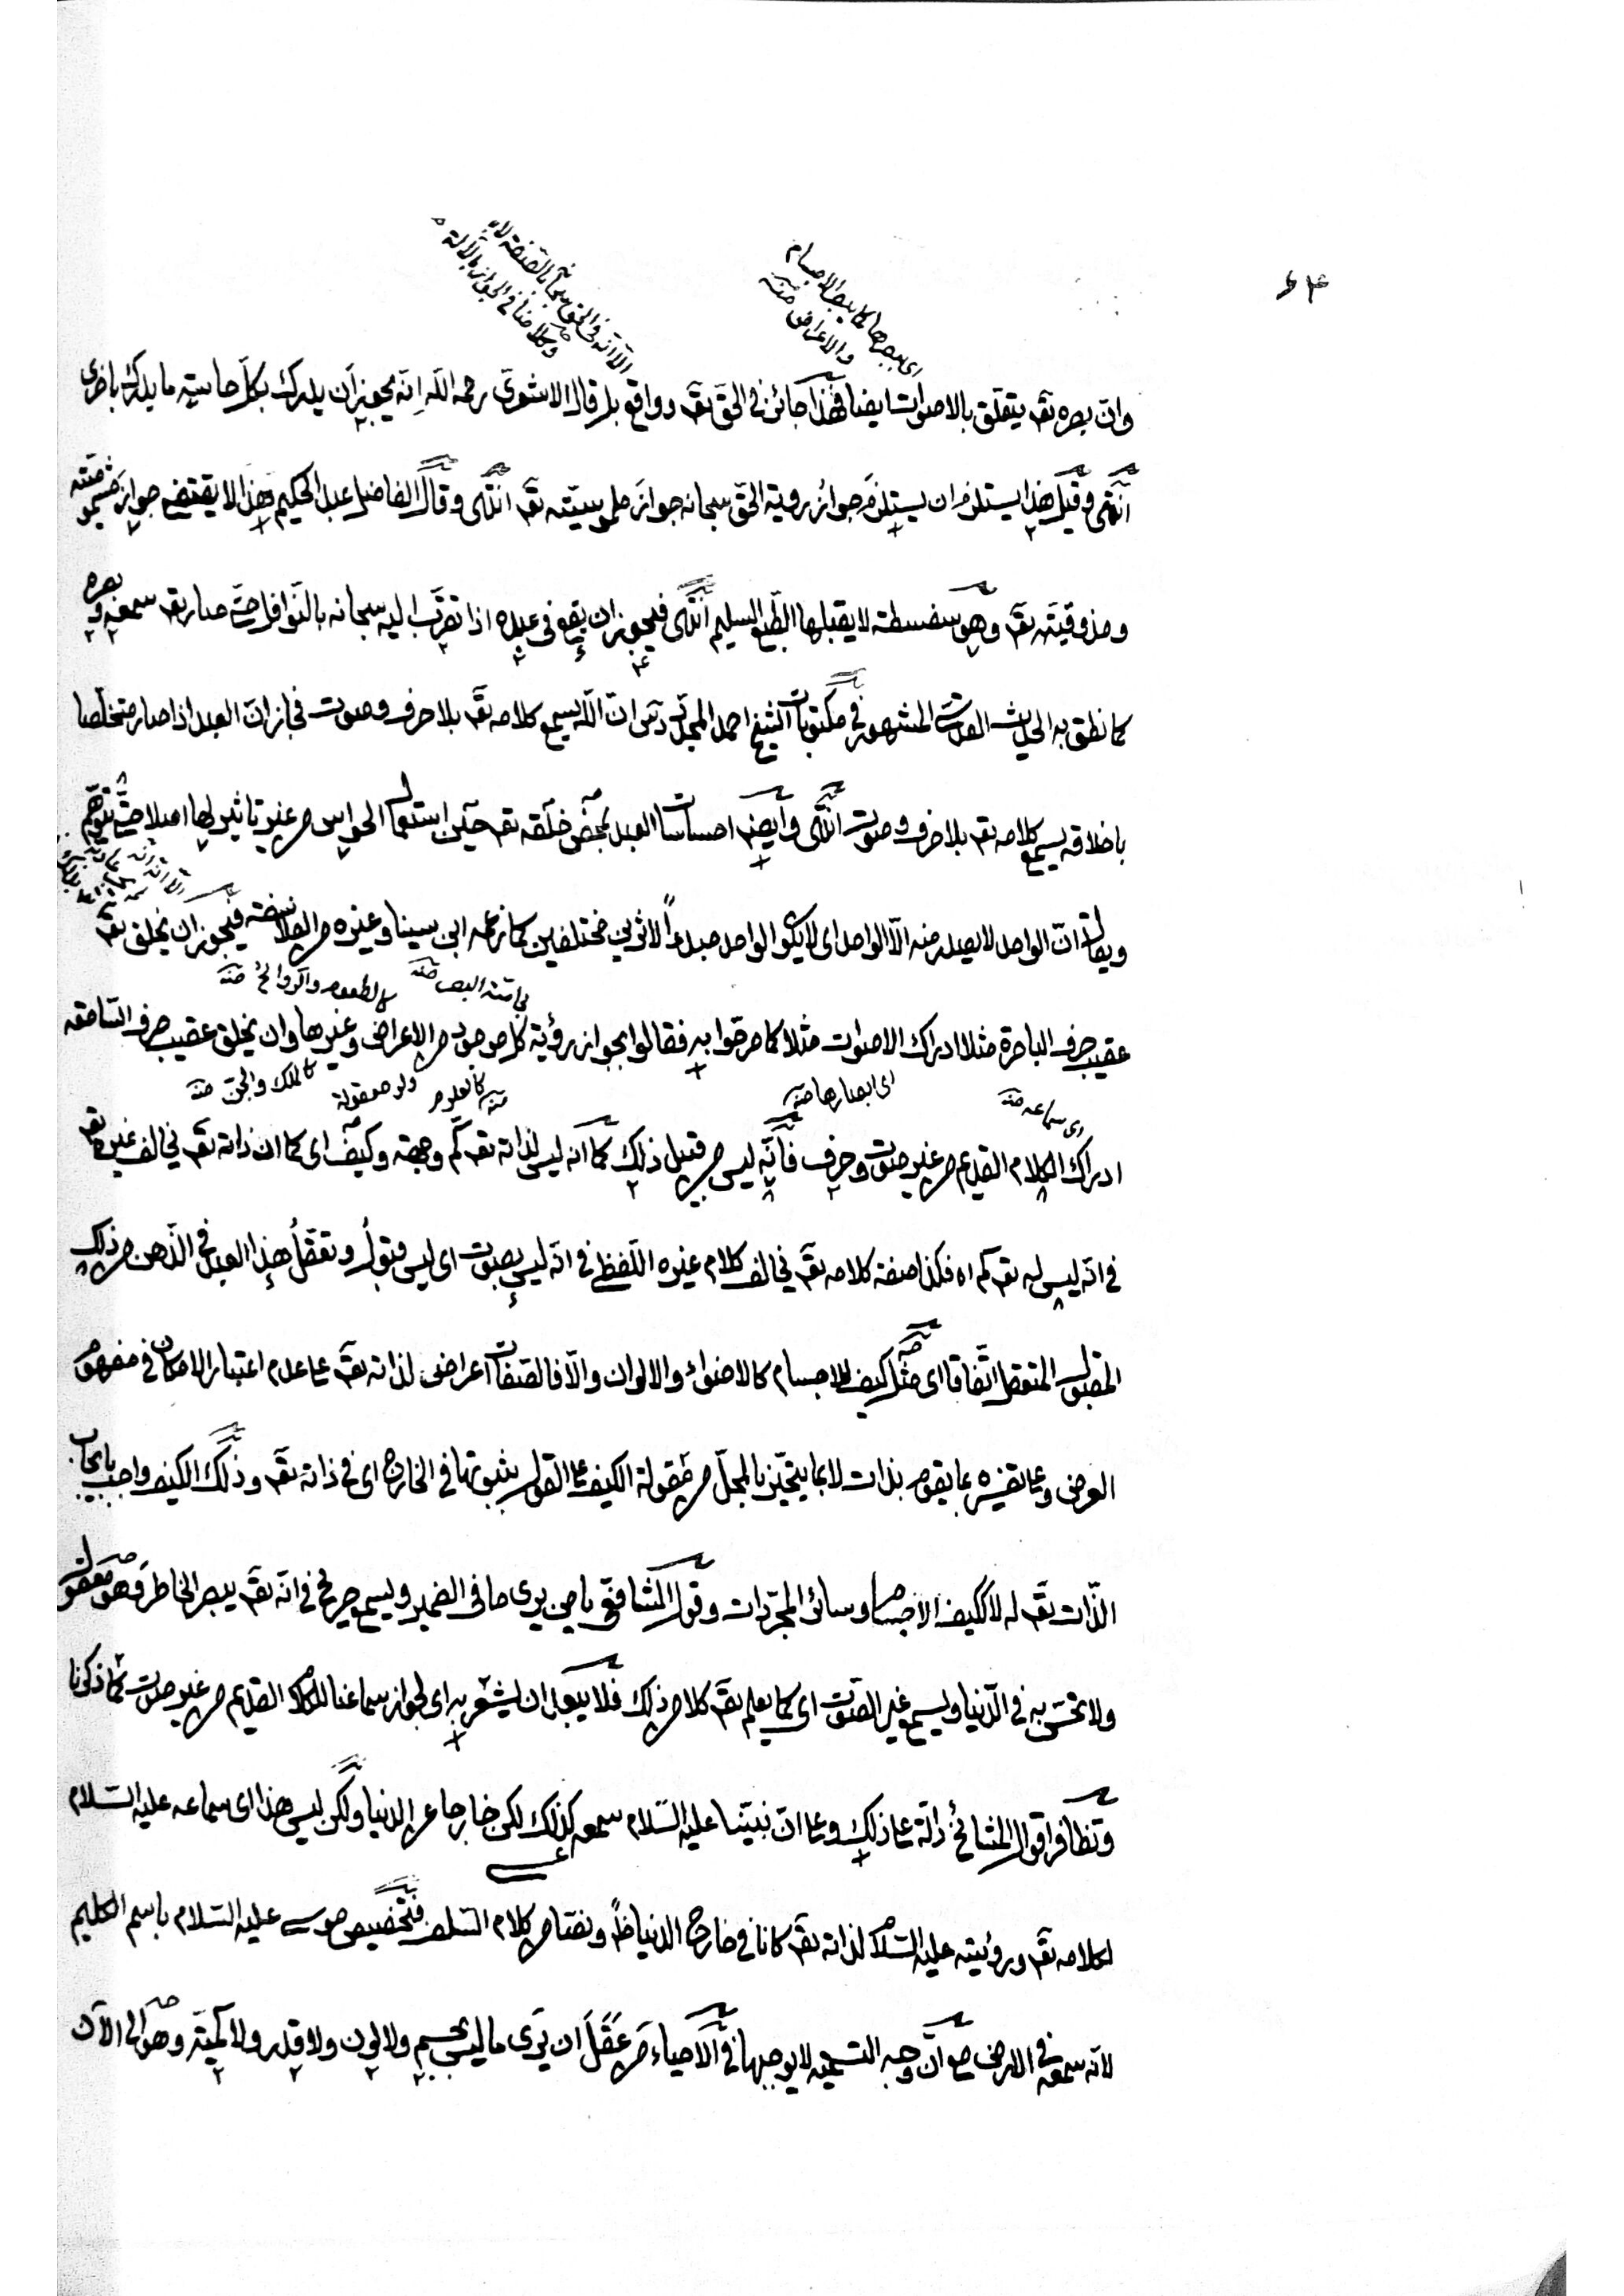 ٦٤
اى يبصرها كما يبصر الاجسام
والاعراض منه
وان بصره تع يتعلق بالاصوات ايضا فهذا جائز فى الحق تع وواقع بل قال الاشعرى رحمه الله انه يجوز ان يدرك بكل حاسية ما يدرك باخرى
انتهى وقيل هذا يستلزم ان يستلزم جواز رؤية الحق سبحانه جواز ملموسيته تع انتهى وقال الفاضل عبد الحكيم هذا لا يقتضى جواز مشموميته
ومذوقيته تع وهو سفسطة لا يقبلها الطبع السليم انتهى فيجوز ان يقع فى عبده اذا تقرب اليه سبحانه بالنوافل حتى صار تع سمعه وبصره
كما نطق به الحديث القدسى المشهور فى مكتوبات الشيخ احمد المجدد ان الله يسمع كلامه تع بلا حرف وصوت فجاز ان العبد اذا صار متخلصا
باخلاقه يسمع كلامه تع بلا حرف وصوت انتهى وايضا احساسات العبد بمحض خلقه تع حين استعمال الحواس من غير تاثير لها اصلا حتى يتوهم
ويقال ان الواحد لا يصدر منه الا الواحد اى لا يكون الواحد مبدءاً لاثرين مختلفين كما زعمه ابن سينا وغيره من الفلاسفة فيجوز ان يخلق تع
كالطعوم والروائح منه
عقيب صرف الباصرة مثلا ادراك الاصوات مثلا كما صرحوا به فقالوا بجواز رؤية كل موجود من الاعراض وغيرها وان يخلق عقيب صرف السامعة
اى سماعه منه
اى ابصارها منه
كالعلوم منه
ولو معقولة
كالملك والجن منه
ادراك الكلام القديم من غير صوت وحرف فانه ليس من قبيل ذلك كما انه ليس لذاته تع كم وجهة وكيف اى كما ان ذاته تع يخالف غيره تع
فى انه ليس له تع كم اه فكذا صفة كلامه تع يخالف كلام غيره اللفظى فى انه ليس بصوت اى ليس مقول وتعقل هذا العبد فى الذهن من ذلك
المقبول المتعقل اتفاقا اى مثل كيف الاجسام كالاضواء والالوان والا فالصفات اعراض لذاته تع على عدم اعتبار الامكان فى مفهوم
العرض وعلى تفسيره بما يقوم بذات لا بما يتحيز بالمحل من مقولة الكيف على القول بثبوتها فى الخارج اى فى ذاته تع وذلك الكيف واجب بايجاب
الذات تع له لا ككيف الاجسام وسائر المجردات وقول الشافعى يا من يرى ما فى الضمير ويسمع صريح فى انه تع يبصر الخاطر وهو معقول
ولا تحس به فى الدنيا ويسمع غير الصوت اى كما يعلم تع كلا من ذلك فلا يبعد ان يشعر به اى لجواز سماعنا للكلام القديم من غير صوت كما ذكرنا
وتظافر اقوال المشائخ دالة على ذلك وعلى ان نبينا عليه السلام سمعه كذلك لكن خارجا عن الدنيا ولكن ليس هذا اى سماعه عليه السلام
لكلامه تع ورؤيته عليه السلام لذاته تع كانا فى خارج الدنيا ونصا من كلام السلف فتخصيص موسى عليه السلام باسم الكليم
لانه سمعه فى الارض مع ان وجه التسمية لا يوجبها فى الاحياء من عقل ان يرى ما ليس بجسم ولا لون ولا قدر ولا كمية وهو الى الآن